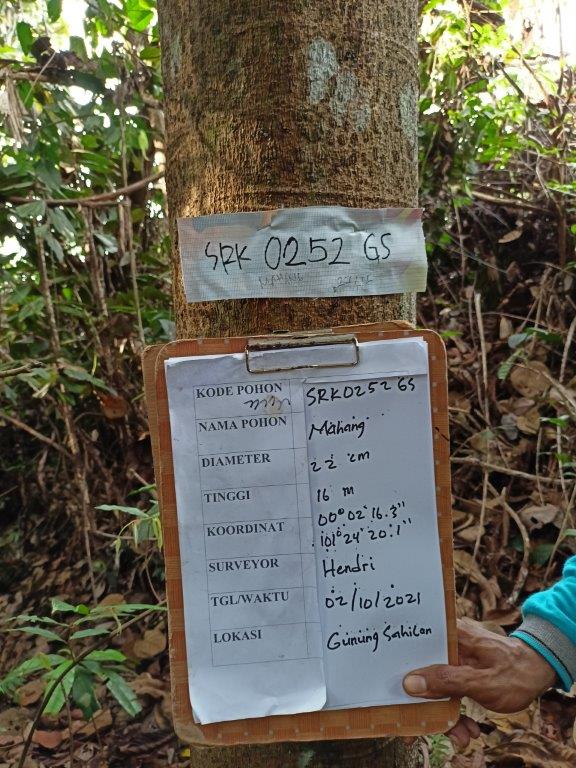 SRK 0252 GS
KODE POHON SRK0252 GS
NAMA POHON Mahang
DIAMETER 22 cm
TINGGI 16 m
KOORDINAT 00° 02' 16.3"
101° 24' 20.1"
SURVEYOR Hendri
TGL/WAKTU 02/10/2021
LOKASI Gunung Sahilan